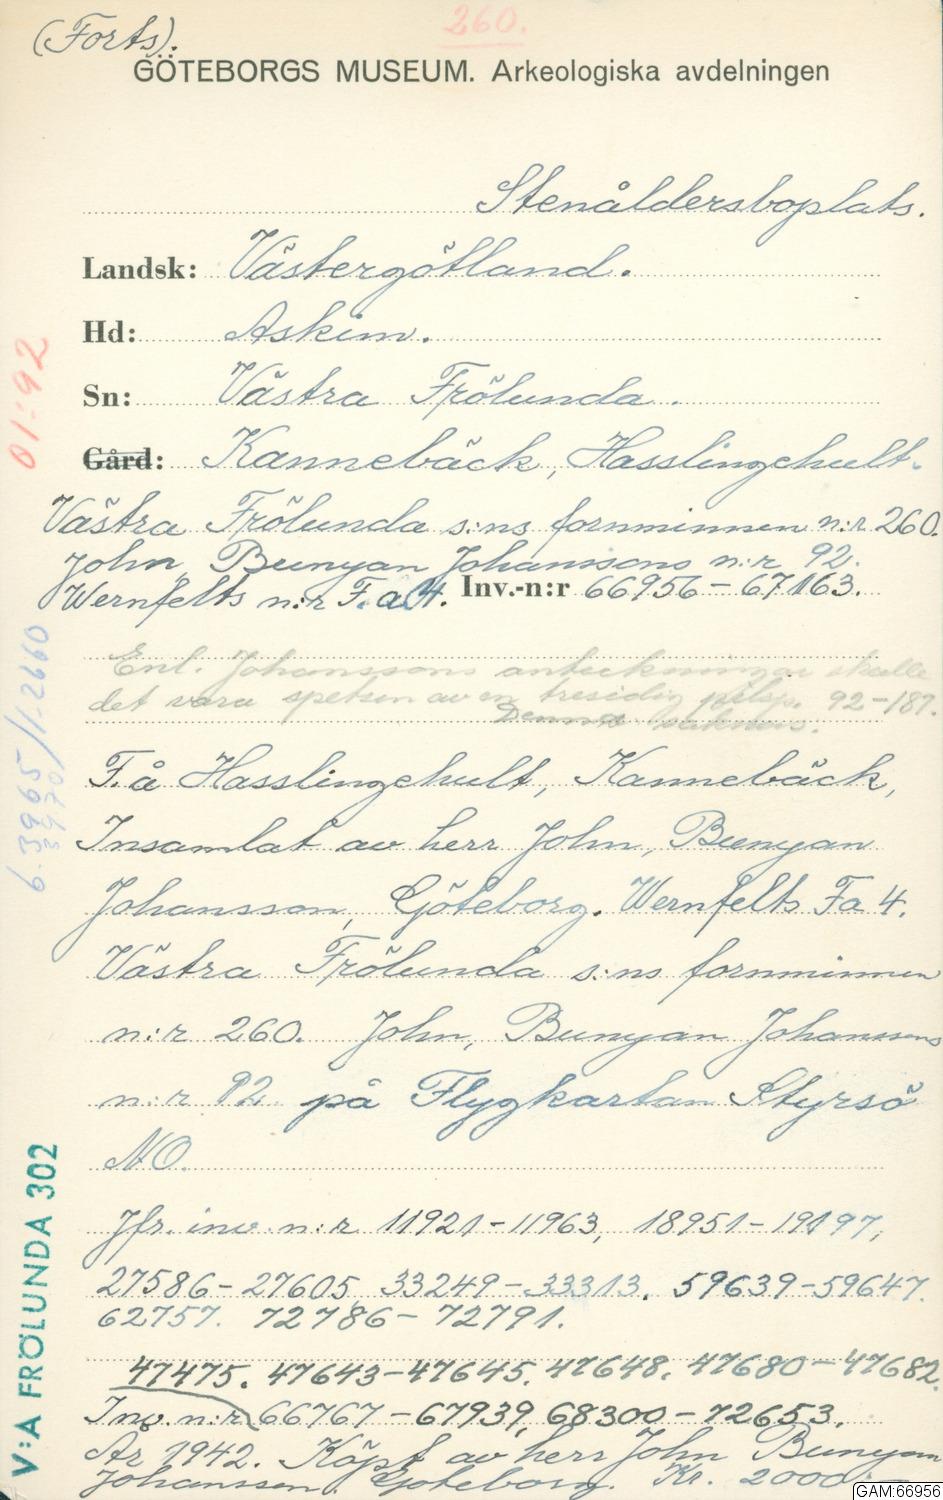 (Forts).
260.
GÖTEBORGS MUSEUM. Arkeologiska avdelningen
Stenåldersboplats.
Landsk: Västergötland.
Hd: Askim.
Sn: Västra Frölunda.
Gård: Kannebäck, Hasslingehult.
Västra Frölunda s:ns fornminnen n:r 260.
John, Bunyan Johanssons n:r 92.
Wernfelts n:r F.a 4. Inv.-n:r 66956-67163.
Enl. Johanssons anteckningar skulle
det vara spetsen av en tresidig pilsp. 92-187.
Denna saknas.
F.å Hasslingehult, Kannebäck,
Insamlat av herr John, Bunyan
Johansson, Göteborg. Wernfelts Fa 4.
Västra Frölunda s:ns fornminnen
n:r 260. John, Bunyan Johanssons
n:r 92 på Flygkartan Styrsö
NO.
Jfr. inv. n:r 11921-11963, 18951-19197,
27586-27605, 33249-33313. 59639-59647.
62757. 72786-72791.
47475. 47643-47645. 47648. 47680-47682.
Inv. n:r 66767-67939, 68300-72653.
År 1942. Köpt av herr John Bunyan
Johansson, Göteborg. Kr. 2000:-
01:92
6.3965/1-2660
3970
V:A FRÖLUNDA 302
GAM:66956